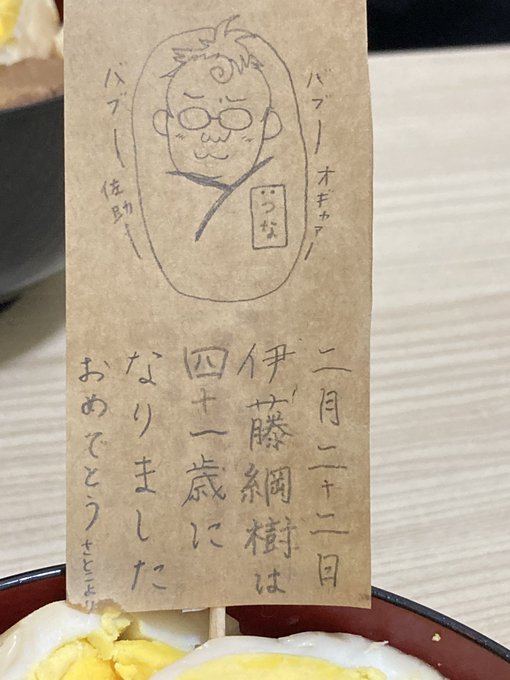 バブー
オギャァー
バブー
佐助ー
つな
二月二十二日
伊藤綱樹は
四十一歳に
なりました
おめでとう
さとこより